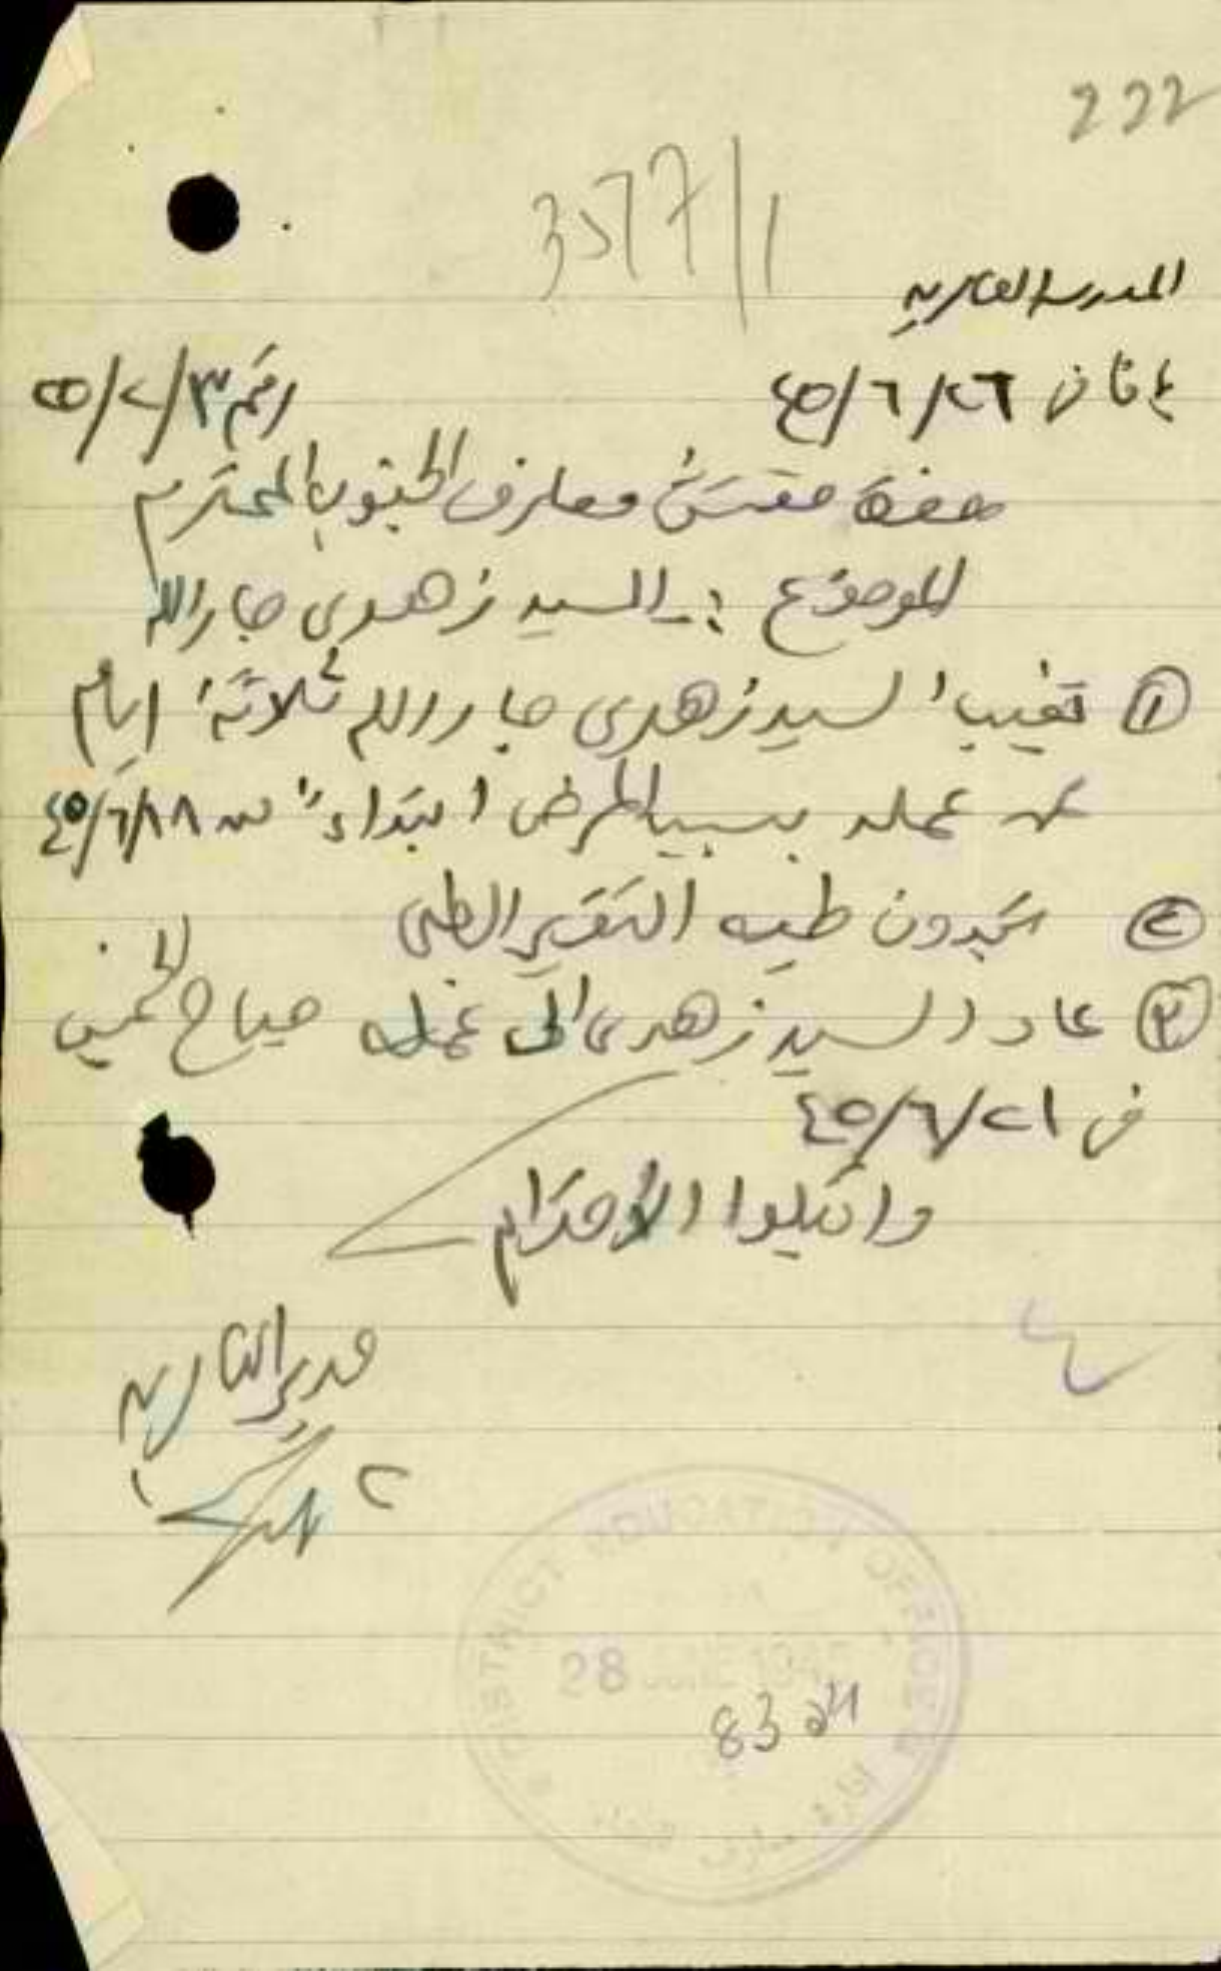 222
3577/1
المدرسة العامرية
يافا في ٢٦/٦/٤٥
رقم ٣/٢/٥٥
حضرة مفتش معارف الجنوب المحترم
الموضوع :ـ السيد زهدي جار الله
١ تغيب السيد زهدي جار الله ثلاثة ايام
عن عمله بسبب المرض ابتداءً من ١٨/٦/٤٥
٢ تجدون طيه التقرير الطبي
٣ عاد السيد زهدي الى عمله صباح الخميس
في ٢١/٦/٤٥
واقبلوا الاحترام
مدير العامرية
DISTRICT EDUCATION OFFICE
28 JUNE 1945
8324
ادارة معارف